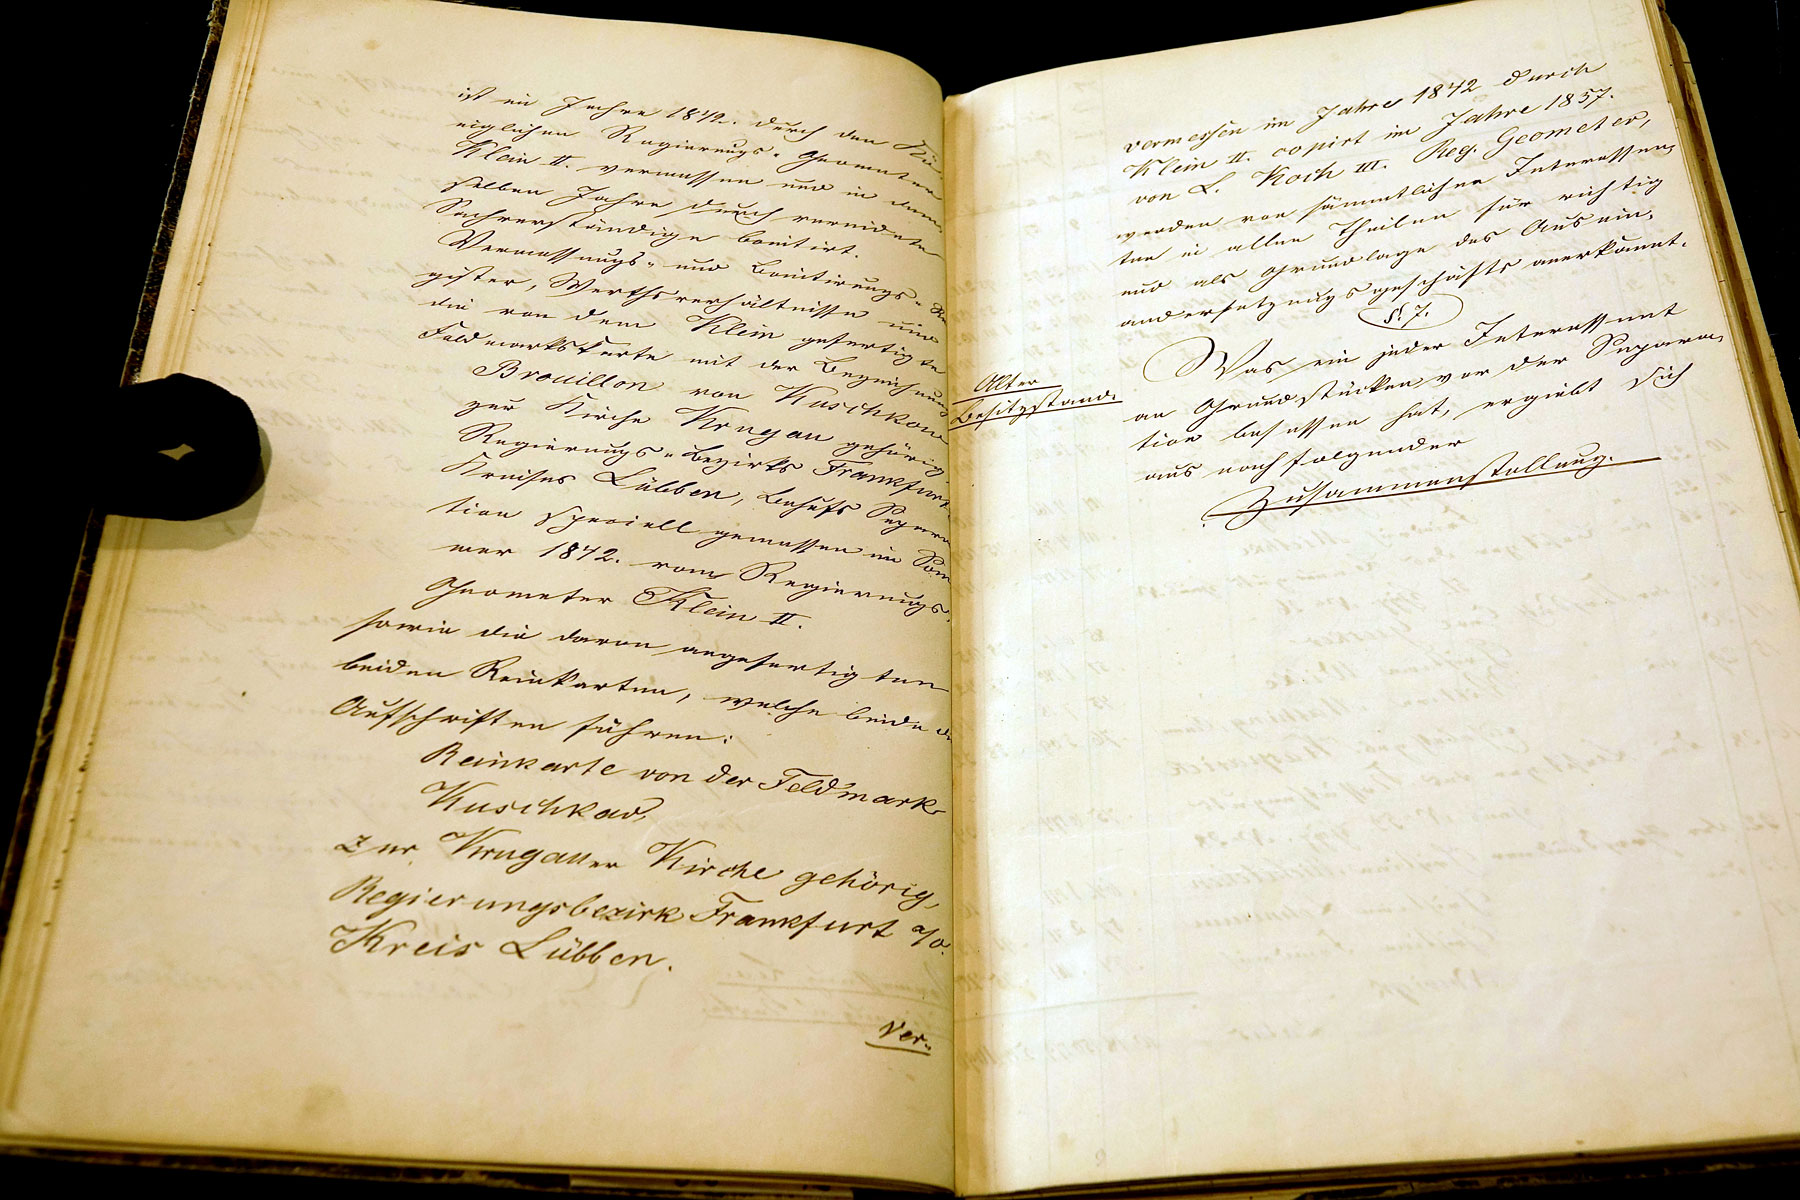 ist im Jahre 1842. durch den Kö-
niglichen Regierungs-Geometer
Klein II. vermessen und in dem-
selben Jahre durch vereidete
Sachverständige bonitirt.
Vermessungs- und Bonitirungs-Re-
gister, Werthsverhältnisse und
die von dem Klein gefertigte
Feldmarkskarte mit der Bezeichnung
Brouillon von Kuschkow
zur Kirche Krugau gehörig,
Regierungs-Bezirks Frankfurt
Kreises Lübben, behufs Separa
tion speciell gemessen im Som
mer 1842. vom Regierungs-
Geometer Klein II.
sowie die davon angefertigten
beiden Reinkarten, welche beide die
Aufschriften führen:
Reinkarte von der Feldmark
Kuschkow,
zur Krugauer Kirche gehörig,
Regierungsbezirk Frankfurt a/O.
Kreis Lübben.
Ver-
vermessen im Jahre 1842 durch
Klein II. copirt im Jahre 1857.
von L. Koch III. Reg. Geometer,
werden von sämmtlichen Interessen-
ten in allen Theilen für richtig
und als Grundlage des Ausein-
andersetzungsgeschäfts anerkannt.
§. 7.
Alter
Besitzstand.
Was ein jeder Interessent
an Grundstücken vor der Separa-
tion besessen hat, ergiebt sich
aus nachfolgender
Zusammenstellung.